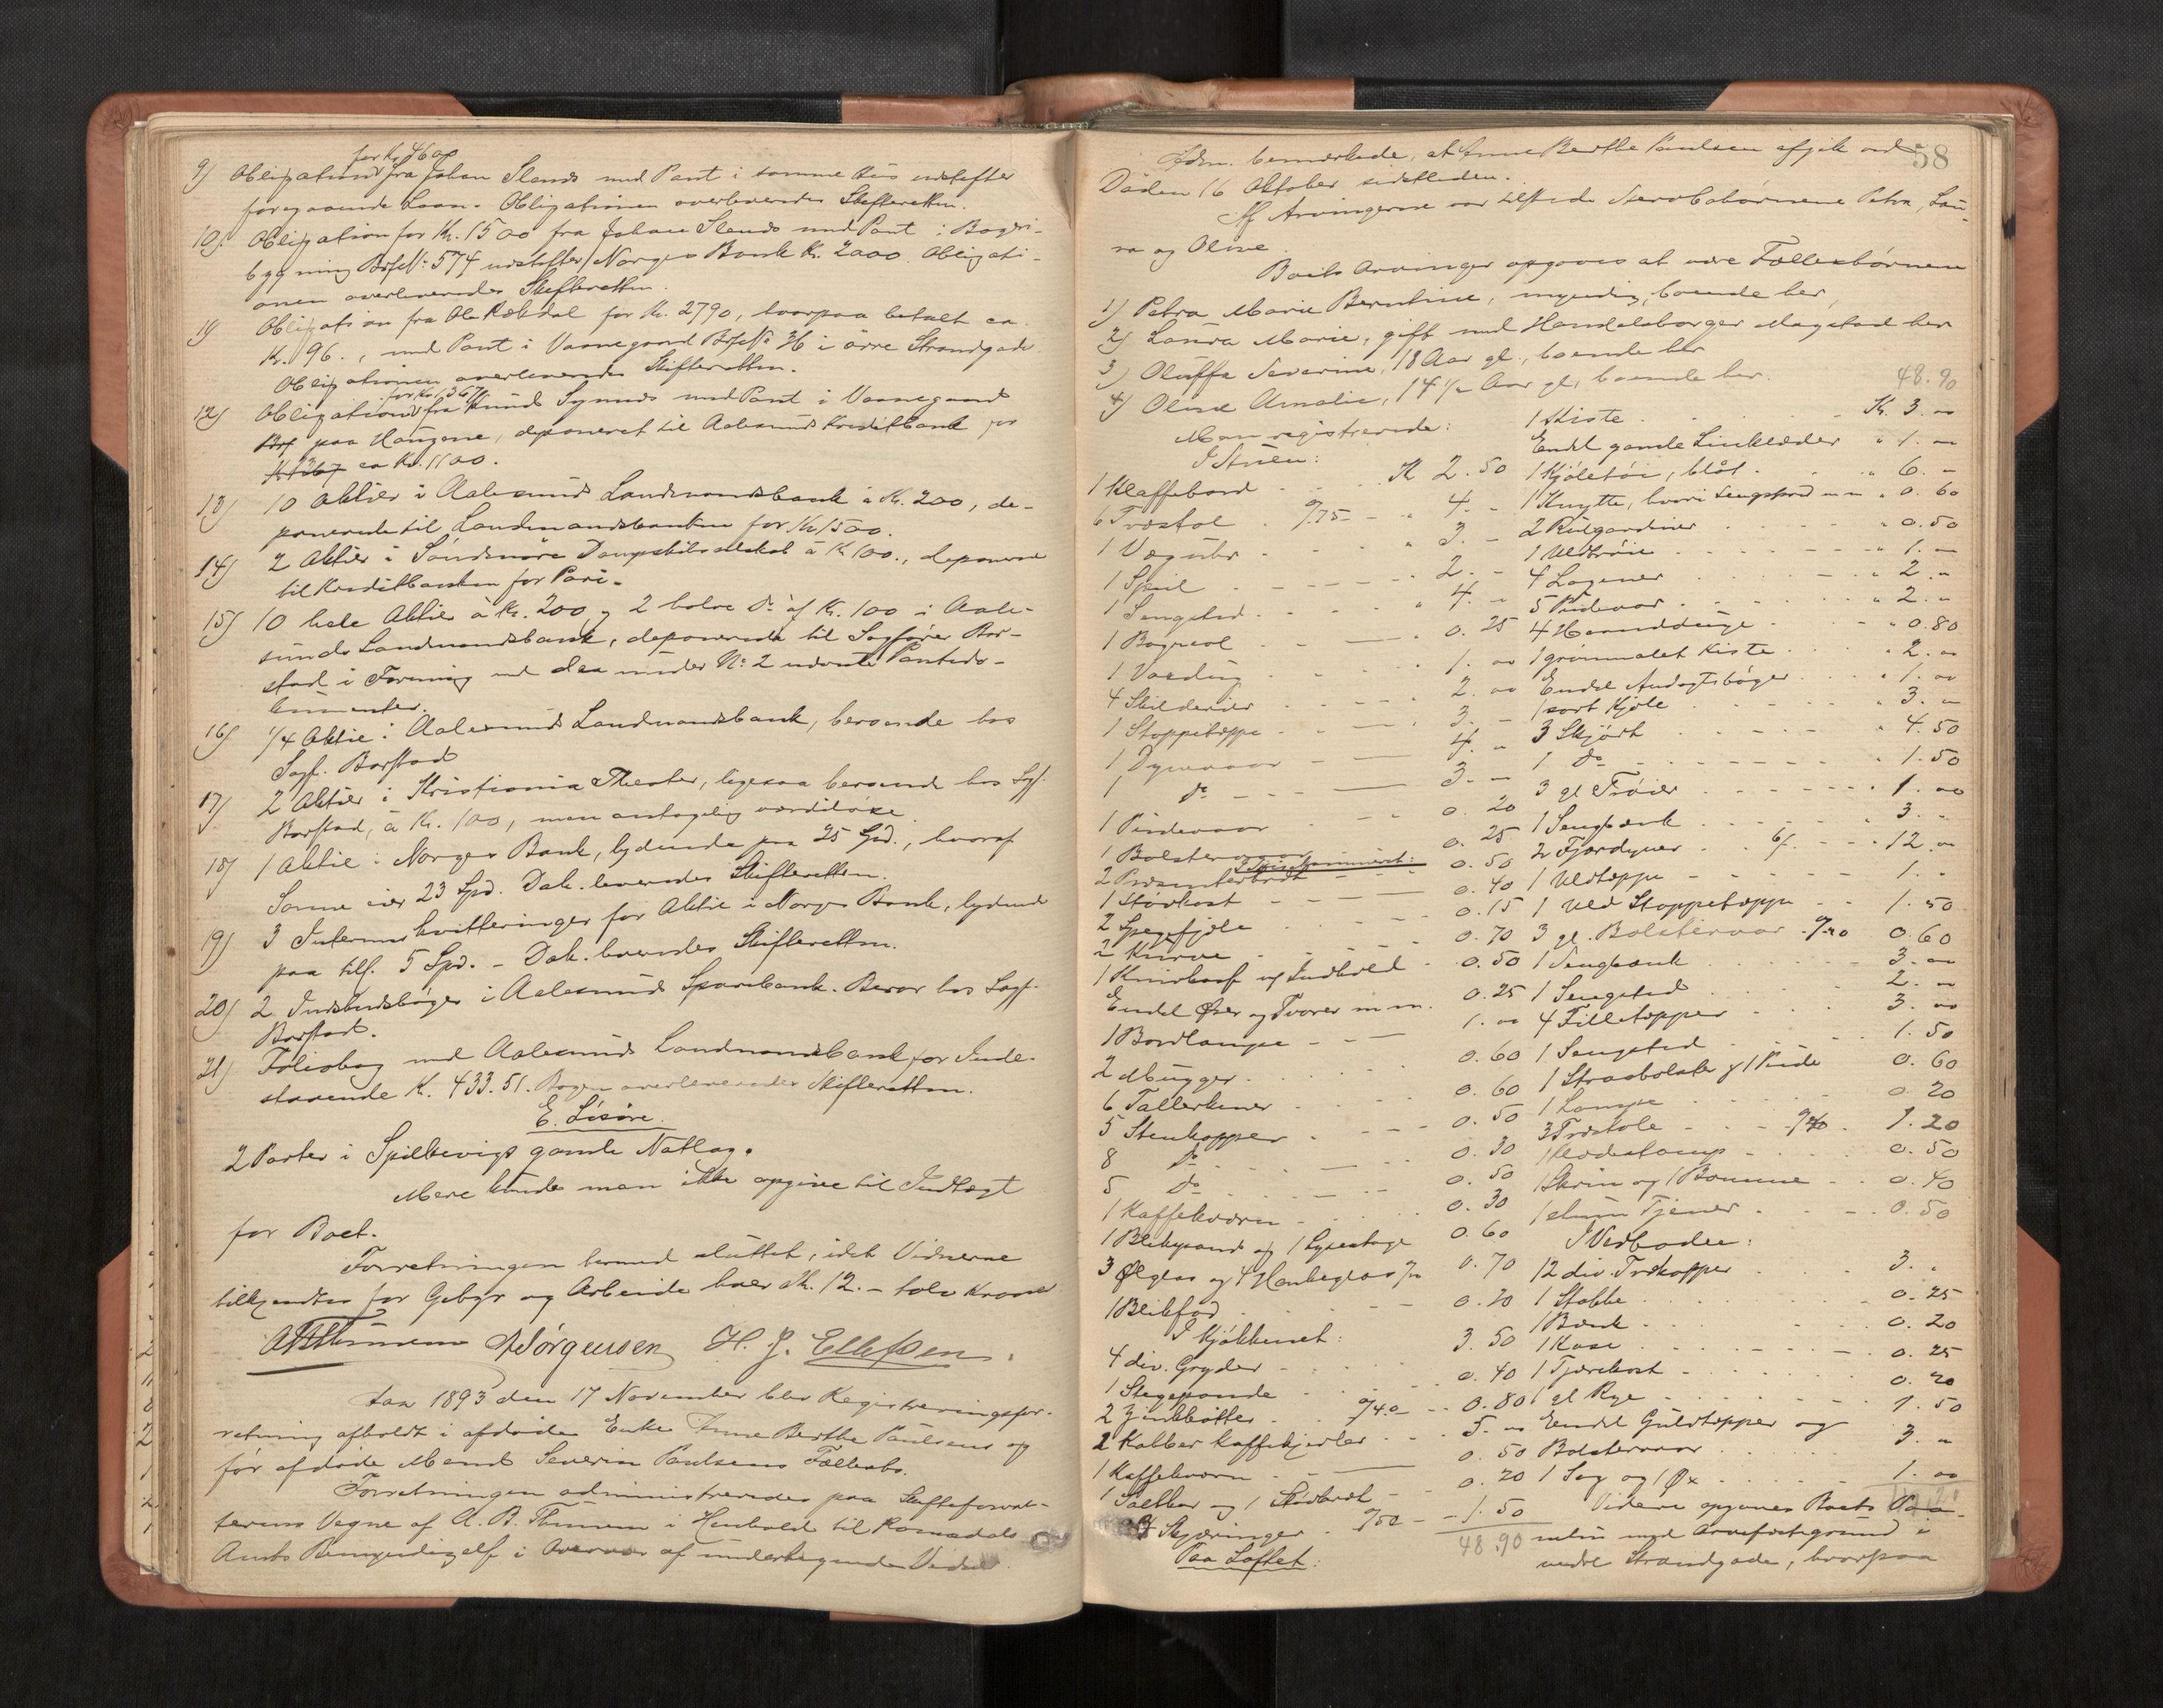 for Kr. 460,-
9) Obligation fra Johan Slends med Pant i samme Hus udstedt efter
foregaaende Laan. Obligationen overleveredes Skifteretten.
10) Obligation for Kr. 1500 fra Johan Slends med Pant i Bageri-
bygning BrfNo: 574 udstedt efter Norges Bank Kr. 2000. Obligati-
onen overleveredes Skifteretten.
11) Obligation fra Ole Rekdal for Kr. 2790, hvorpaa betalt ca
Kr. 96., med Pant i Vaanegaard BrfNo 36 i øvre Strandgade.
Obligationen overleveredes Skifteretten.
for Kr. 1367
12) Obligation fra Knud Synnes med Pant i Vaanegaard
paa Haugene, deponeret til Aalesunds Kreditbank for
Kr 1367 ca Kr. 1100.
13) 10 Aktier i Aalesunds Landmandsbank à Kr. 200, de-
ponerede til Landmandsbanken for Kr. 1500.
14) 2 Aktier i Søndmøre Dampskibsselskab à Kr 100., deponerede
til Kreditbanken for Pari.
15) 10 hele Aktier à Kr. 200 og 2 halve Do af Kr. 100 i Aale-
sunds Landmandsbank, deponerede til Sagfører Bar-
stad i Forening med den under No: 2 nævnte Pantedo-
kumenter.
16) 1/4 Aktie i Aalesunds Landmandsbank, beroende hos
Sagf. Barstad
17) 2 Aktier i Kristiania Theater, ligesaa beroende hos Sagf.
Barstad, à Kr. 100, men antagelig værdiløse.
18) 1 Aktie i Norges Bank, lydende paa 25 Spd., hvoraf
Sønne eier 23 Spd. Dok. leveredes Skifteretten.
19) 3 Interimskvitteringer for Aktie i Norges Bank, lydende
paa tils. 5 Spd. - Dok. leveredes Skifteretten.
20) 2 Indskudsbøger i Aalesunds Sparebank. Beror hos Sagf.
Barstad.
21) Foliobog med Aalesunds Landmandsbank for Inde-
staaende Kr. 433.51. Bogen overleveredes Skifteretten.
E. Løsøre.
2 Parter i Spilkevigs gamle Notlag.
Mere kunde man ikke opgive til Indtægt
for Boet.
Forretningen hermed sluttet, idet Vidnerne
tilkjendtes for Gebyr og Arbeide hver Kr. 12. - tolv Kroner
A B Thunem A Jørgensen H. J. Ellefsen.
Aar 1893 den 17 November blev Registreringsfor-
retning afholdt i afdøde Enke Anne Berthe Paulsens og
før afdøde Mand Severin Paulsens Fællesbo.
Forretningen administreredes paa Skifteforval-
terens Vegne af A. B. Thunem i Henhold til Romsdals
Amts Bemyndigelse i Overvær af undertegnede Vidner.
58
Adm. bemærkede, at Anne Berthe Paulsen afgik ved
Døden 16 Oktober sidstleden.
Af Arvingerne var tilstede Stervbobørnene Petra, Lau-
ra og Oline.
Boets Arvinger opgaves at være Fællesbørnene
1) Petra Marie Berntine, myndig, boende her,
2) Laura Marie, gift med Handelsborger Magstad her
3) Oluffa Severine, 18 Aar gl., boende her
4) Oline Amalie, 14 1/2 Aar gl, boende her.
Man registrerede:
I Stuen:
1 Klaffebord - Kr 2.50
6 Træstol . 0/75 - " 4. "
1 Væguhr - " 3. -
1 Speil - 2. -
1 Sengsted - " 4. "
1 Bogreol - 0.25
1 Vaadug - 1. 00
4 Skilderier - 2. 00
1 Stoppetæppe - 3. -
1 Dynevaar - 4. "
1 Do - 3. -
1 Pudevaar - 0.20
1 Bolstervaar - 0.25
2 Præsenterbræt - 0.50
1 Støvkost - 0.40
2 Spegefjøle - 0.15
2 Kurve - 0.70
1 Knivkurf og Indhold - 0.50
Endel Øser og Tvorer m.m. 0.25
1 Bordlampe - 1. 00
2 Mugger - 0.60
6 Tallerkener - 0.60
5 Stenkopper - 0.50
8 Do - 0.30
5 Do - 0.50
1 Kaffekværn - 0.30
1 Blikspand og 1 Lysestage 0.60
3 Ølglas og 4 Hankeglas 0.70
1 Blikfad - 0.20
I Kjøkkenet:
4 div. Gryder - 3.50
1 Stegepande - 0.40
2 Zinkbøtter . 0/40 - 0.80
2 Kobber kaffekjedler - 5. 00
1 Kaffekværn - 0.50
1 Saltkar og 1 Skobræt - 0.20
3 Skjæringer - 0/50 - 1.50
48.90
Paa Loftet:
48.90
1 Kiste - Kr. 3. 00
Endel gamle Linklæder " 1. 00
1 Kjoletøi, blåt - " 6. -
1 Knytte, hvori Sengstad m m " 0.60
2 Rulgardiner - " 0.50
1 Uldtrøie - " 1. -
4 Lagener - " 2. "
5 Pudevaar - " 2. "
4 Haanddúge - " 0.80
1 grønmalet Kiste - 2. 00
Endel Andagtsbøger - 1. 00
1 sort Kjole - 3. "
3 Skjørt - " 4.50
1 Do - " 1.50
3 gl Trøier - 1. 00
1 Sengbænk - " 3. "
2 Fjærdyner . . 6/. - 12. 00
1 Uldtæppe - 1. "
1 Uld Stoppetæppe - 1.50
3 gl. Bolstervaar 0/20 0.60
1 Sengbænk - 3. 00
1 Sengsted - 2. "
4 Filletæpper - 3. 00
1 Sengsted - 1.50
1 Straabolster og 1 Pude 0.60
1 Lampe - 0.20
3 Træstole - 0/40 . 1.20
1 Klædestamp - 0.50
1 Skrin og 1 Bomme - 0.40
1 stum Tjener - 0.50
I Vedboden:
12 div. Trækopper - 3. "
1 Stabbe - 0.25
1 Bænk - 0.20
1 Kasse - 0.25
1 Tjærekost - 0.20
1 gl Rye - 1.50
Endel Gulvtæpper og
Bolstervaar - 3. "
1 Sag og 1 Øx - 1. 00
Videre opgaves Boets Paa-
med Arvefæstegrund i
nedre Strandgade, hvorpaa